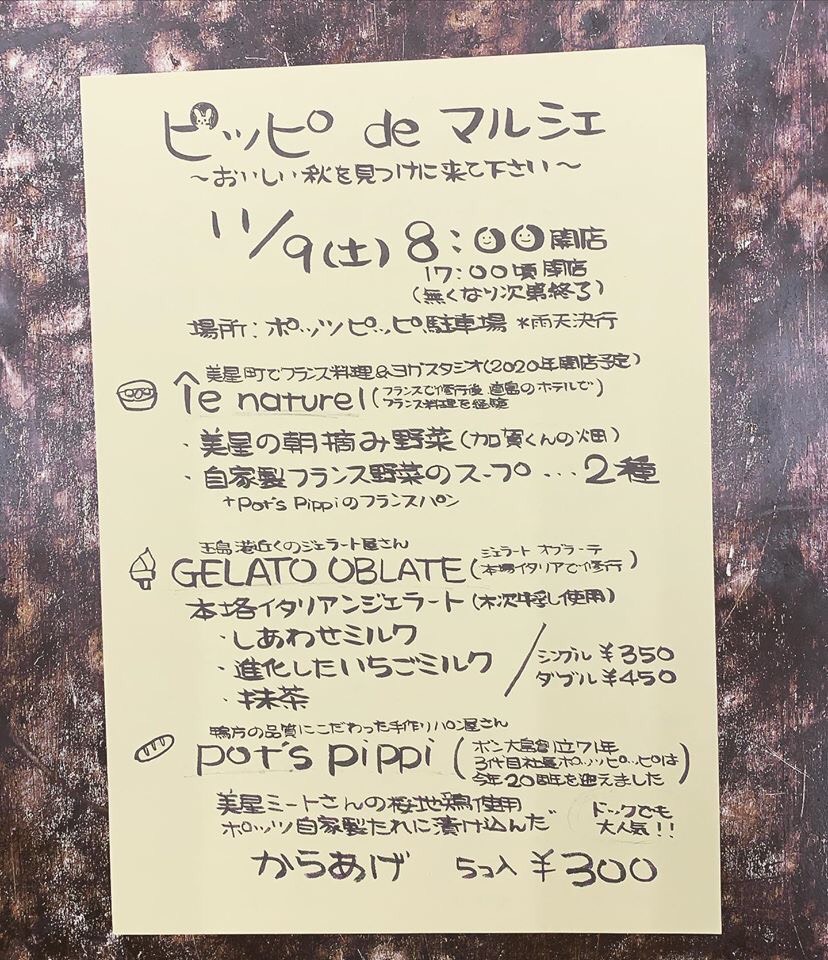 ピッピ de マルシェ
～おいしい秋を見つけに来て下さい～
11/9(土) 8:00開店
17:00頃閉店
(無くなり次第終了)
場所：ポッツピッピ駐車場 *雨天決行
美星町でフランス料理&ヨガスタジオ(2020年開店予定)
le naturel (フランスで修行後 直島のホテルで
フランス料理を経験)
・美星の朝摘み野菜(加賀くんの畑)
・自家製フランス野菜のスープ...2種
+pot's pippiのフランスパン
玉島港近くのジェラート屋さん
GELATO OBLATE (ジェラート オブラーテ
本場イタリアで修行)
本格イタリアンジェラート(木次牛乳使用)
・しあわせミルク
・進化したいちごミルク / シングル ¥350
ダブル ¥450
・抹茶
鴨方の品質にこだわった手作りパン屋さん
pot's pippi (ボン大島創立71年
3代目社長ポッツピッピは
今年20周年を迎えました)
美星ミートさんの桜地鶏使用
ポッツ自家製たれに漬け込んだ
ドックでも
大人気!!
からあげ 5コ入 ¥300